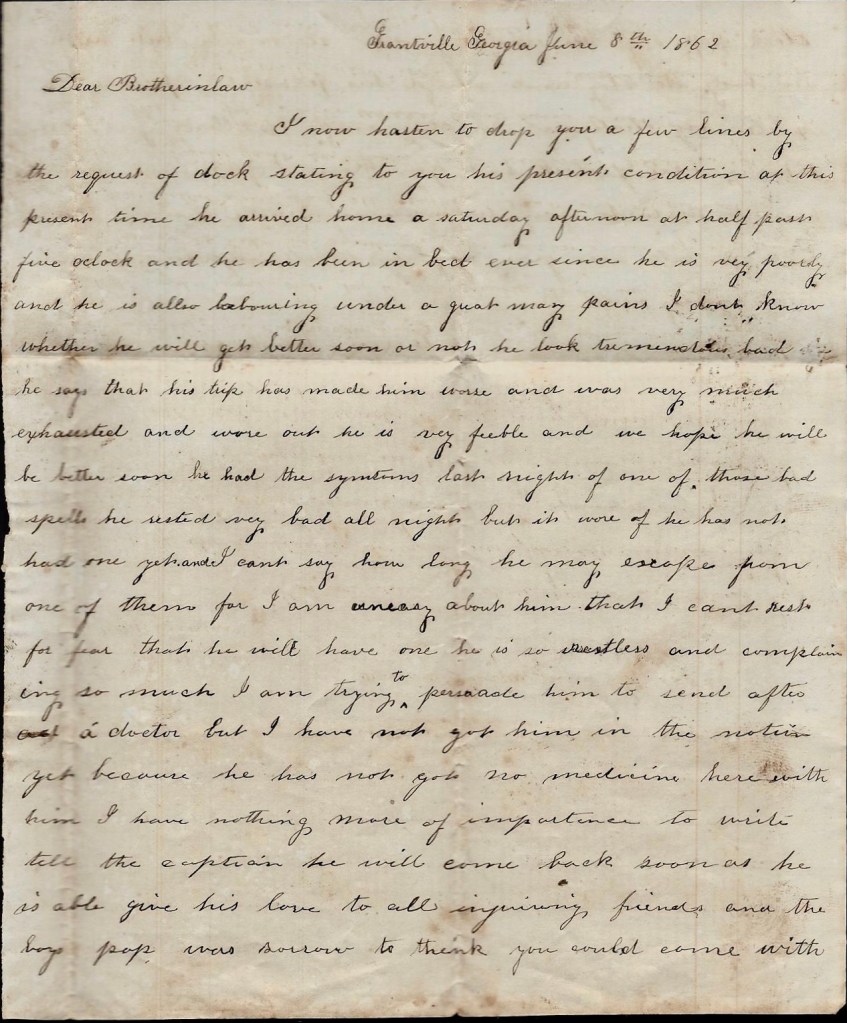 Grantville Georgia June 8th 1862
Dear Brotherinlaw
I now hasten to drop you a few lines by
the request of dock stating to you his present condition at this
present time he arrived home a saturday afternoon at half past
five oclock and he has been in bed ever since he is very poordy
and he is allso labouring under a great many pains I dont know
whether he will get better soon or not he look tremendous bad
he says that his trip has made him worse and was very much
exhausted and wore out he is very feeble and we hope he will
be better soon he had the symtums last night of one of those bad
spells he rested very bad all night but it wore of he has not
had one yet and I cant say how long he may escape from
one of them for I am uneasy about him that I cant rest
for fear that he will have one he is so restless and complain
ing so much I am trying to persuade him to send after
a doctor but I have not got him in the notion
yet because he has not got no medicine here with
him I have nothing more of importence to write
tell the captian he will come back soon as he
is able give his love to all inquiring friends and the
boys pap was sorrow to think you could come with